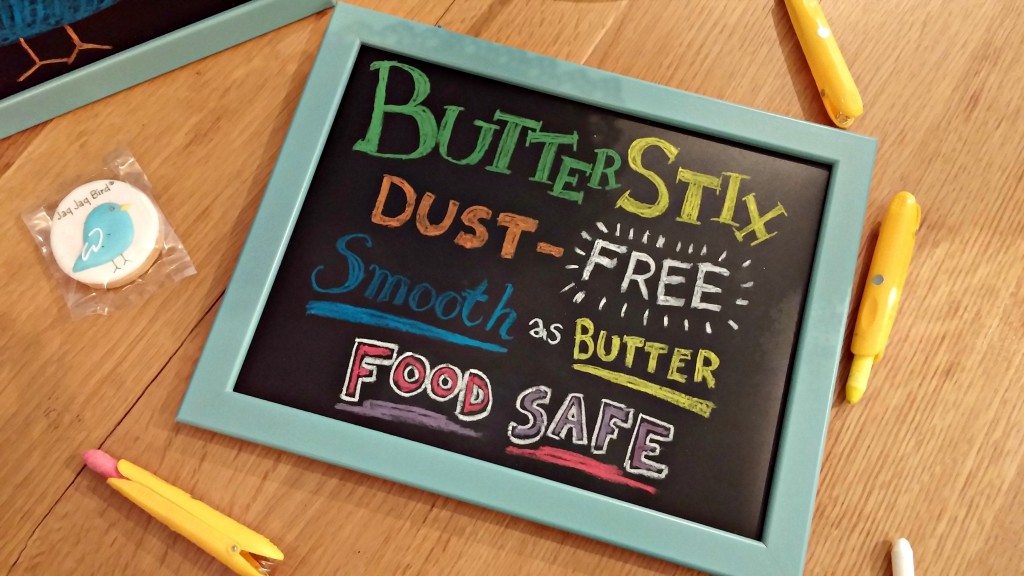 BUTTERSTIX
DUST-FREE
Smooth as BUTTER
FOOD SAFE
Jaq Jaq Bird®